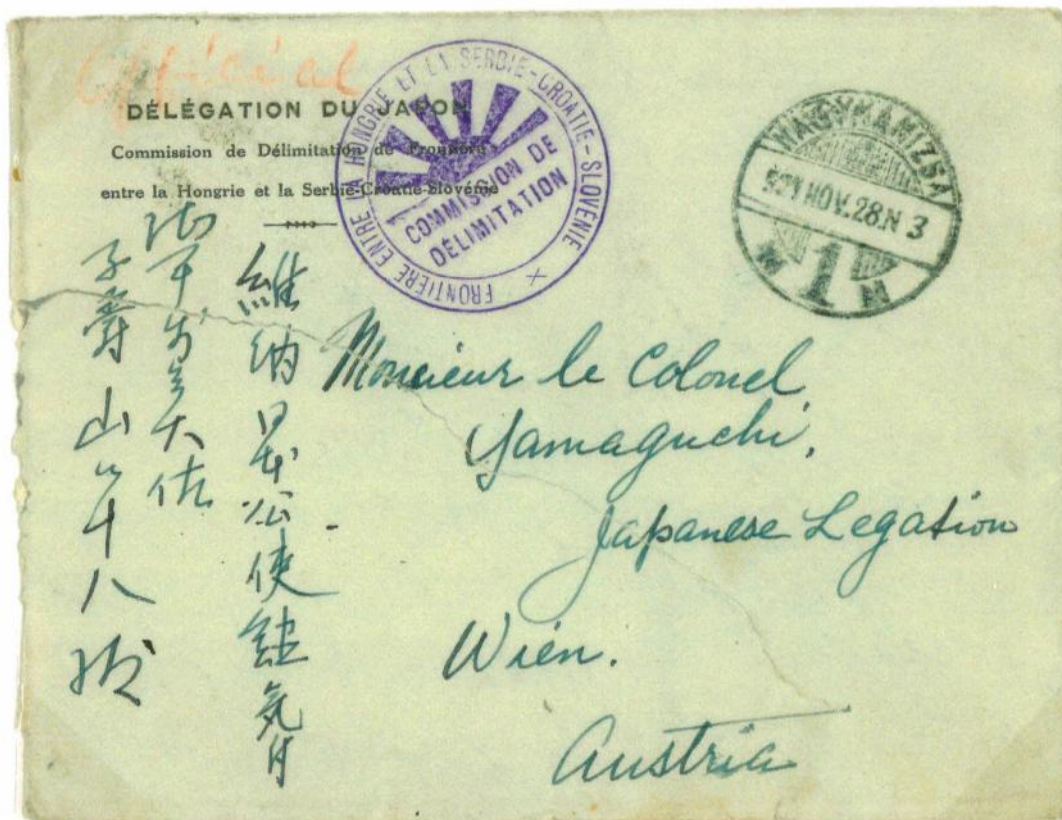 Official
DÉLÉGATION DU JAPON
Commission de Délimitation de Frontière
entre la Hongrie et la Serbie-Croatie-Slovénie
FRONTIÈRE ENTRE LA HONGRIE ET LA SERBIE-CROATIE-SLOVENIE
COMMISSION DE
DÉLIMITATION
NAGYKANIZSA
921 NOV. 28 N 3
1
維納日本公使館気付
大佐
子爵山口十八殿
Monsieur le Colonel
Yamaguchi,
Japanese Legation
Wien.
Austria